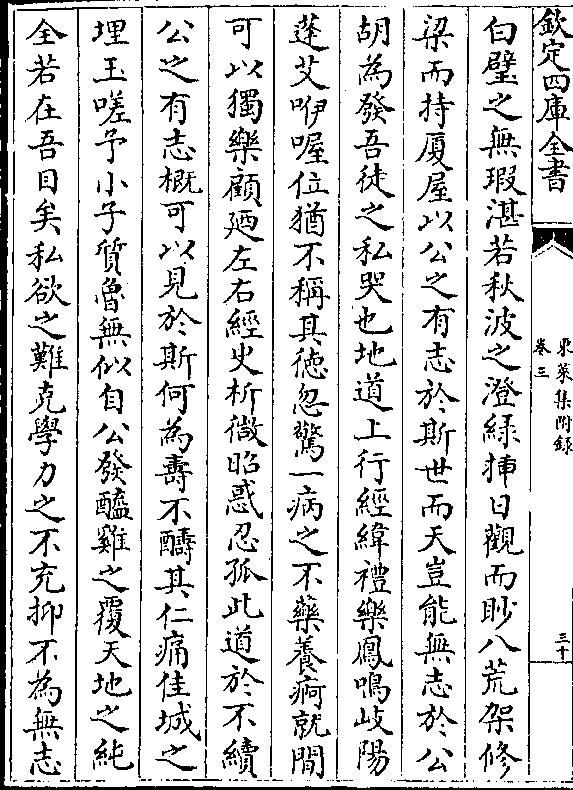 欽定四庫全書
東萊集附錄
卷三
三十
白璧之無瑕湛若秋波之澄綠挿日觀而眇八荒架修
梁而持厦屋以公之有志於斯世而天豈能無志於公
胡為發吾徒之私哭也地道上行經緯禮樂鳳鳴岐陽
蓬艾咿喔位猶不稱其徳忽驚一病之不藥養痾就閒
可以獨樂顧廼左右經史析微昭惑忍孤此道於不續
公之有志概可以見於斯何為壽不酬其仁痛佳城之
埋玉嗟予小子質魯無似自公發醯雞之覆天地之純
全若在吾目矣私欲之難克學力之不充抑不為無志